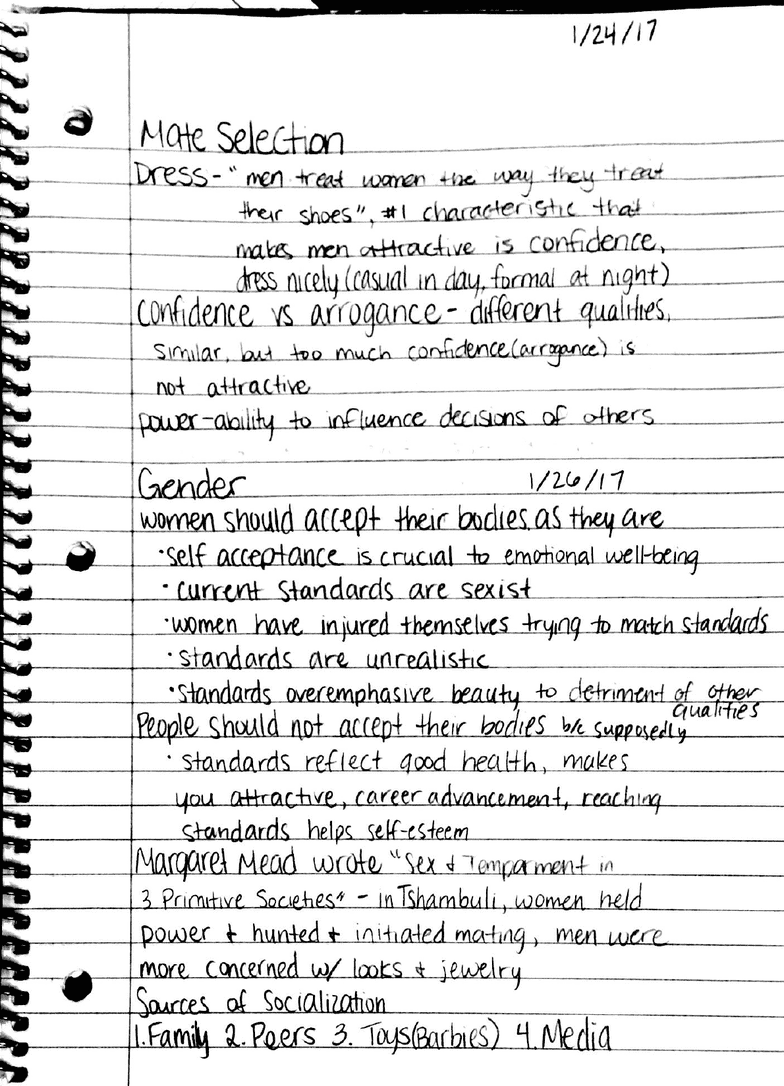 1/24/17
Mate Selection
Dress - "men treat women the way they treat
their shoes", #1 characteristic that
makes men attractive is confidence,
dress nicely (casual in day, formal at night)
Confidence vs arrogance - different qualities,
similar, but too much confidence (arrogance) is
not attractive
power - ability to influence decisions of others
Gender 1/26/17
women should accept their bodies as they are
· self acceptance is crucial to emotional well-being
· current standards are sexist
· women have injured themselves trying to match standards
· standards are unrealistic
· standards overemphasive beauty to detriment of other
qualities
People should not accept their bodies b/c supposedly
· standards reflect good health, makes
you attractive, career advancement, reaching
standards helps self-esteem
Margaret Mead wrote "Sex & Temparment in
3 Primitive Societies" - in Tshambuli, women held
power + hunted + initiated mating, men were
more concerned w/ looks & jewelry
Sources of Socialization
1. Family 2. Peers 3. Toys (Barbies) 4. Media